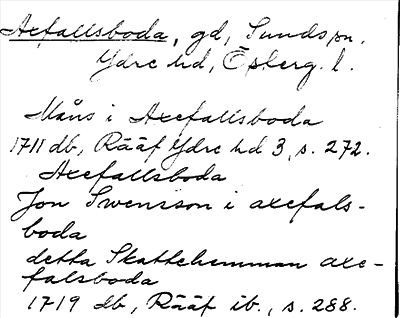 Axefallsboda, gd, Sunds sn.
Ydre hd, Österg. l.
Måns i Axefallsboda
1711 db, Rääf Ydre hd 3, s. 272.
Axefallsboda
Jon Swensson i axefals-
boda
detta Skattehemman axe-
falsboda
1719 db, Rääf ib., s. 288.